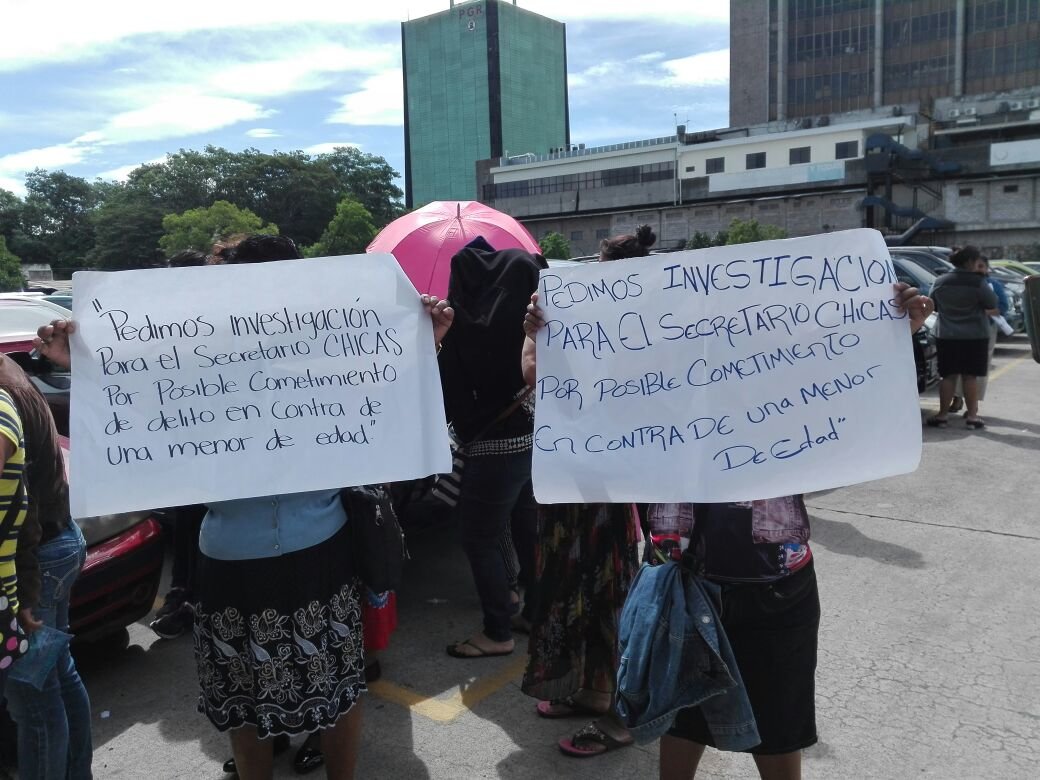 PGR
"Pedimos investigación
Para el Secretario CHICAS
Por Posible Cometimiento
de delito en contra de
una menor de edad."
PEDIMOS INVESTIGACION
PARA El SECRETARIO CHICAS
POR POSIBLE COMETIMIENTO
EN CONTRA DE una MENOR
De Edad"